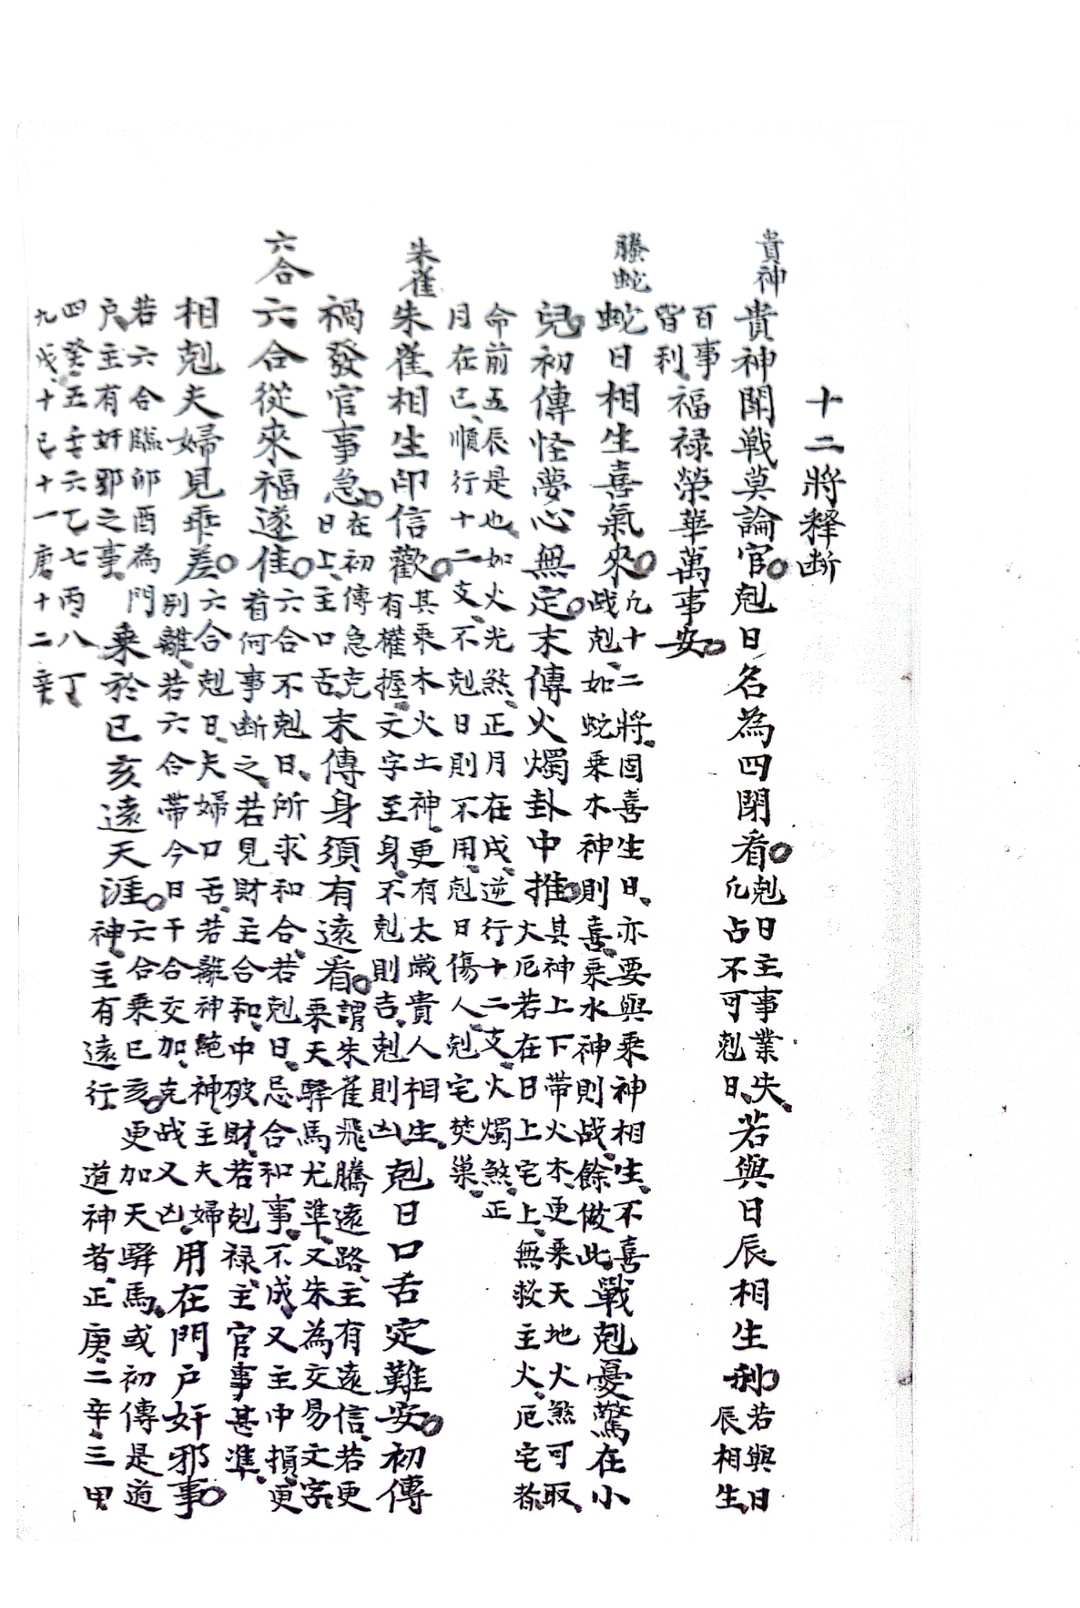 十二將釋断
貴神
貴神閗戦莫論官剋日名為四閉看
剋日主事業失
凢占不可剋日
若與日辰相生利
若與日
辰相生
百事
皆利
福禄榮華萬事安
螣蛇
蛇日相生喜氣來
凢十二將固喜生日亦要與乘神相生不喜
战剋如蛇乘木神則喜乘水神則战餘倣此
戰剋憂驚在小
兒初傳怪夢心無定末傳火燭卦中推
其神上下帶火木更乘天地火煞可取
火厄若在日上宅上無救主火厄宅者
命前五辰是也如火光煞正月在戌逆行十二支火燭煞正
月在巳順行十二支不剋日則不用剋日傷人剋宅焚巢
朱雀
朱雀相生印信歡
其乘木火土神更有太歲貴人相生
有權握文字至身不剋則吉剋則凶
剋日口舌定難安初傳
禍發官事急
在初傳急克
日上主口舌
末傳身須有遠看
謂朱雀飛騰遠路主有遠信若更
乘天驛馬尤準又朱為交易文字
六合
六合從來福遂佳
六合不剋日所求和合若剋日忌合和事不成又主中損更
看何事断之若見財主合和中破財若剋禄主官事甚準
相剋夫婦見乖差
六合剋日夫婦口舌若離神絕神主夫婦
别離若六合帶今日干合交加克战又凶
用在門户奸邪事
若六合臨卯酉為門
户主有奸邪之事
乘於巳亥遠天涯
六合乘巳亥更加天驛馬或初傳是道
神主有遠行 道神者正庚二辛三甲
四癸五壬六乙七丙八丁
九戊十己十一庚十二辛